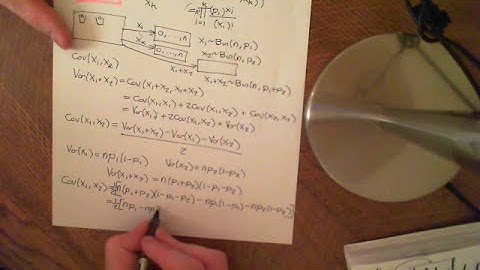 X_k
= n! ∏_{i=1}^{k} (p_i)^{x_i} / (x_i)!
X_1
0,...,n
X_1 ~ Bin(n, p_1)
X_2
0,...,n
X_2 ~ Bin(n, p_2)
X_1+X_2
X_1+X_2 ~ Bin(n, p_1+p_2)
Cov(X_1, X_2)
Var(X_1+X_2) = Cov(X_1+X_2, X_1+X_2)
= Cov(X_1, X_1) + 2Cov(X_1, X_2) + Cov(X_2, X_2)
= Var(X_1) + 2Cov(X_1, X_2) + Var(X_2)
Cov(X_1, X_2) = (Var(X_1+X_2) - Var(X_1) - Var(X_2)) / 2
Var(X_1) = np_1(1-p_1) Var(X_2) = np_2(1-p_2)
Var(X_1+X_2) = n(p_1+p_2)(1-p_1-p_2)
Cov(X_1, X_2) = 1/2[n(p_1+p_2)(1-p_1-p_2) - np_1(1-p_1) - np_2(1-p_2)]
= 1/2[np_1 - np